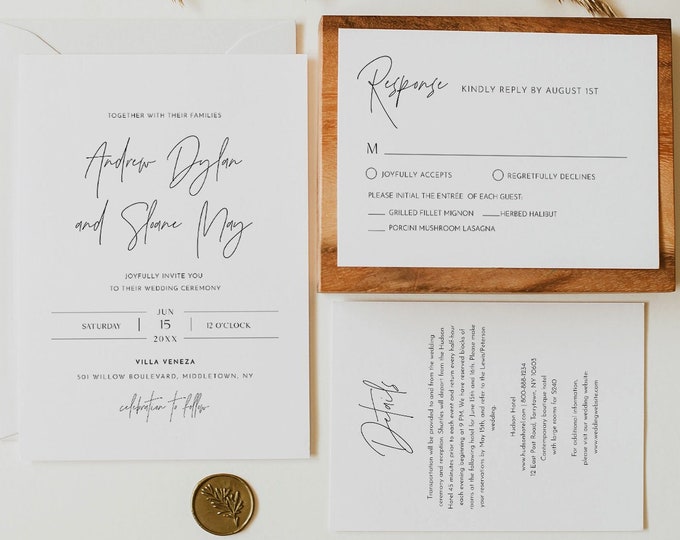 TOGETHER WITH THEIR FAMILIES
Andrew Dylan
and Sloane May
JOYFULLY INVITE YOU
TO THEIR WEDDING CEREMONY
JUN
SATURDAY 15 12 O'CLOCK
20XX
VILLA VENEZA
501 WILLOW BOULEVARD, MIDDLETOWN, NY
celebration to follow
Response KINDLY REPLY BY AUGUST 1ST
M
JOYFULLY ACCEPTS REGRETFULLY DECLINES
PLEASE INITIAL THE ENTRÉE OF EACH GUEST:
GRILLED FILLET MIGNON HERBED HALIBUT
PORCINI MUSHROOM LASAGNA
Details
Transportation will be provided to and from the wedding
ceremony and reception. Shuttles will depart from the Hudson
Hotel 45 minutes prior to each event and return every half-hour
each evening beginning at 9 PM. We have reserved blocks of
rooms at the following hotel for June 15th and 16th. Please make
your reservations by May 15th, and refer to the Lewis/Peterson
wedding.
Hudson Hotel
www.hudsonhotel.com | 800-888-1234
12 East Post Road, Tarrytown, NY 10603
Contemporary boutique hotel
with large rooms for $240
For additional information,
please visit our wedding website:
www.weddingwebsite.com